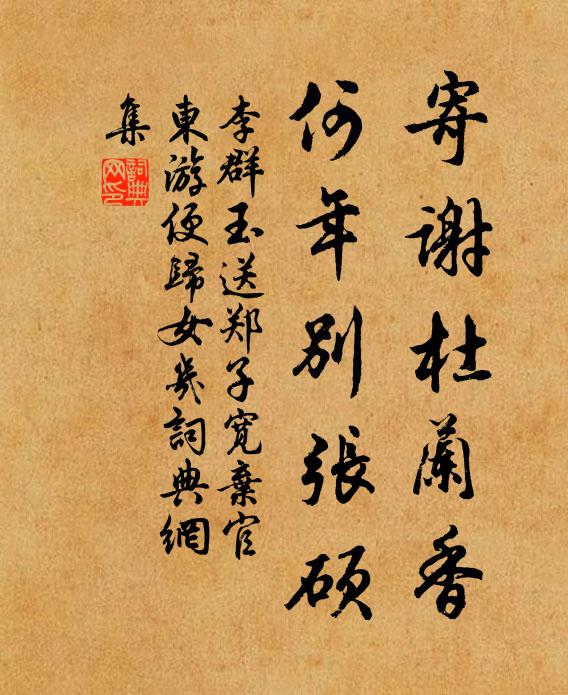 寄謝杜蘭香
何年別張碩
李群玉送郑子寬棄官
東游便歸女幾詞典網
集
詞典网印